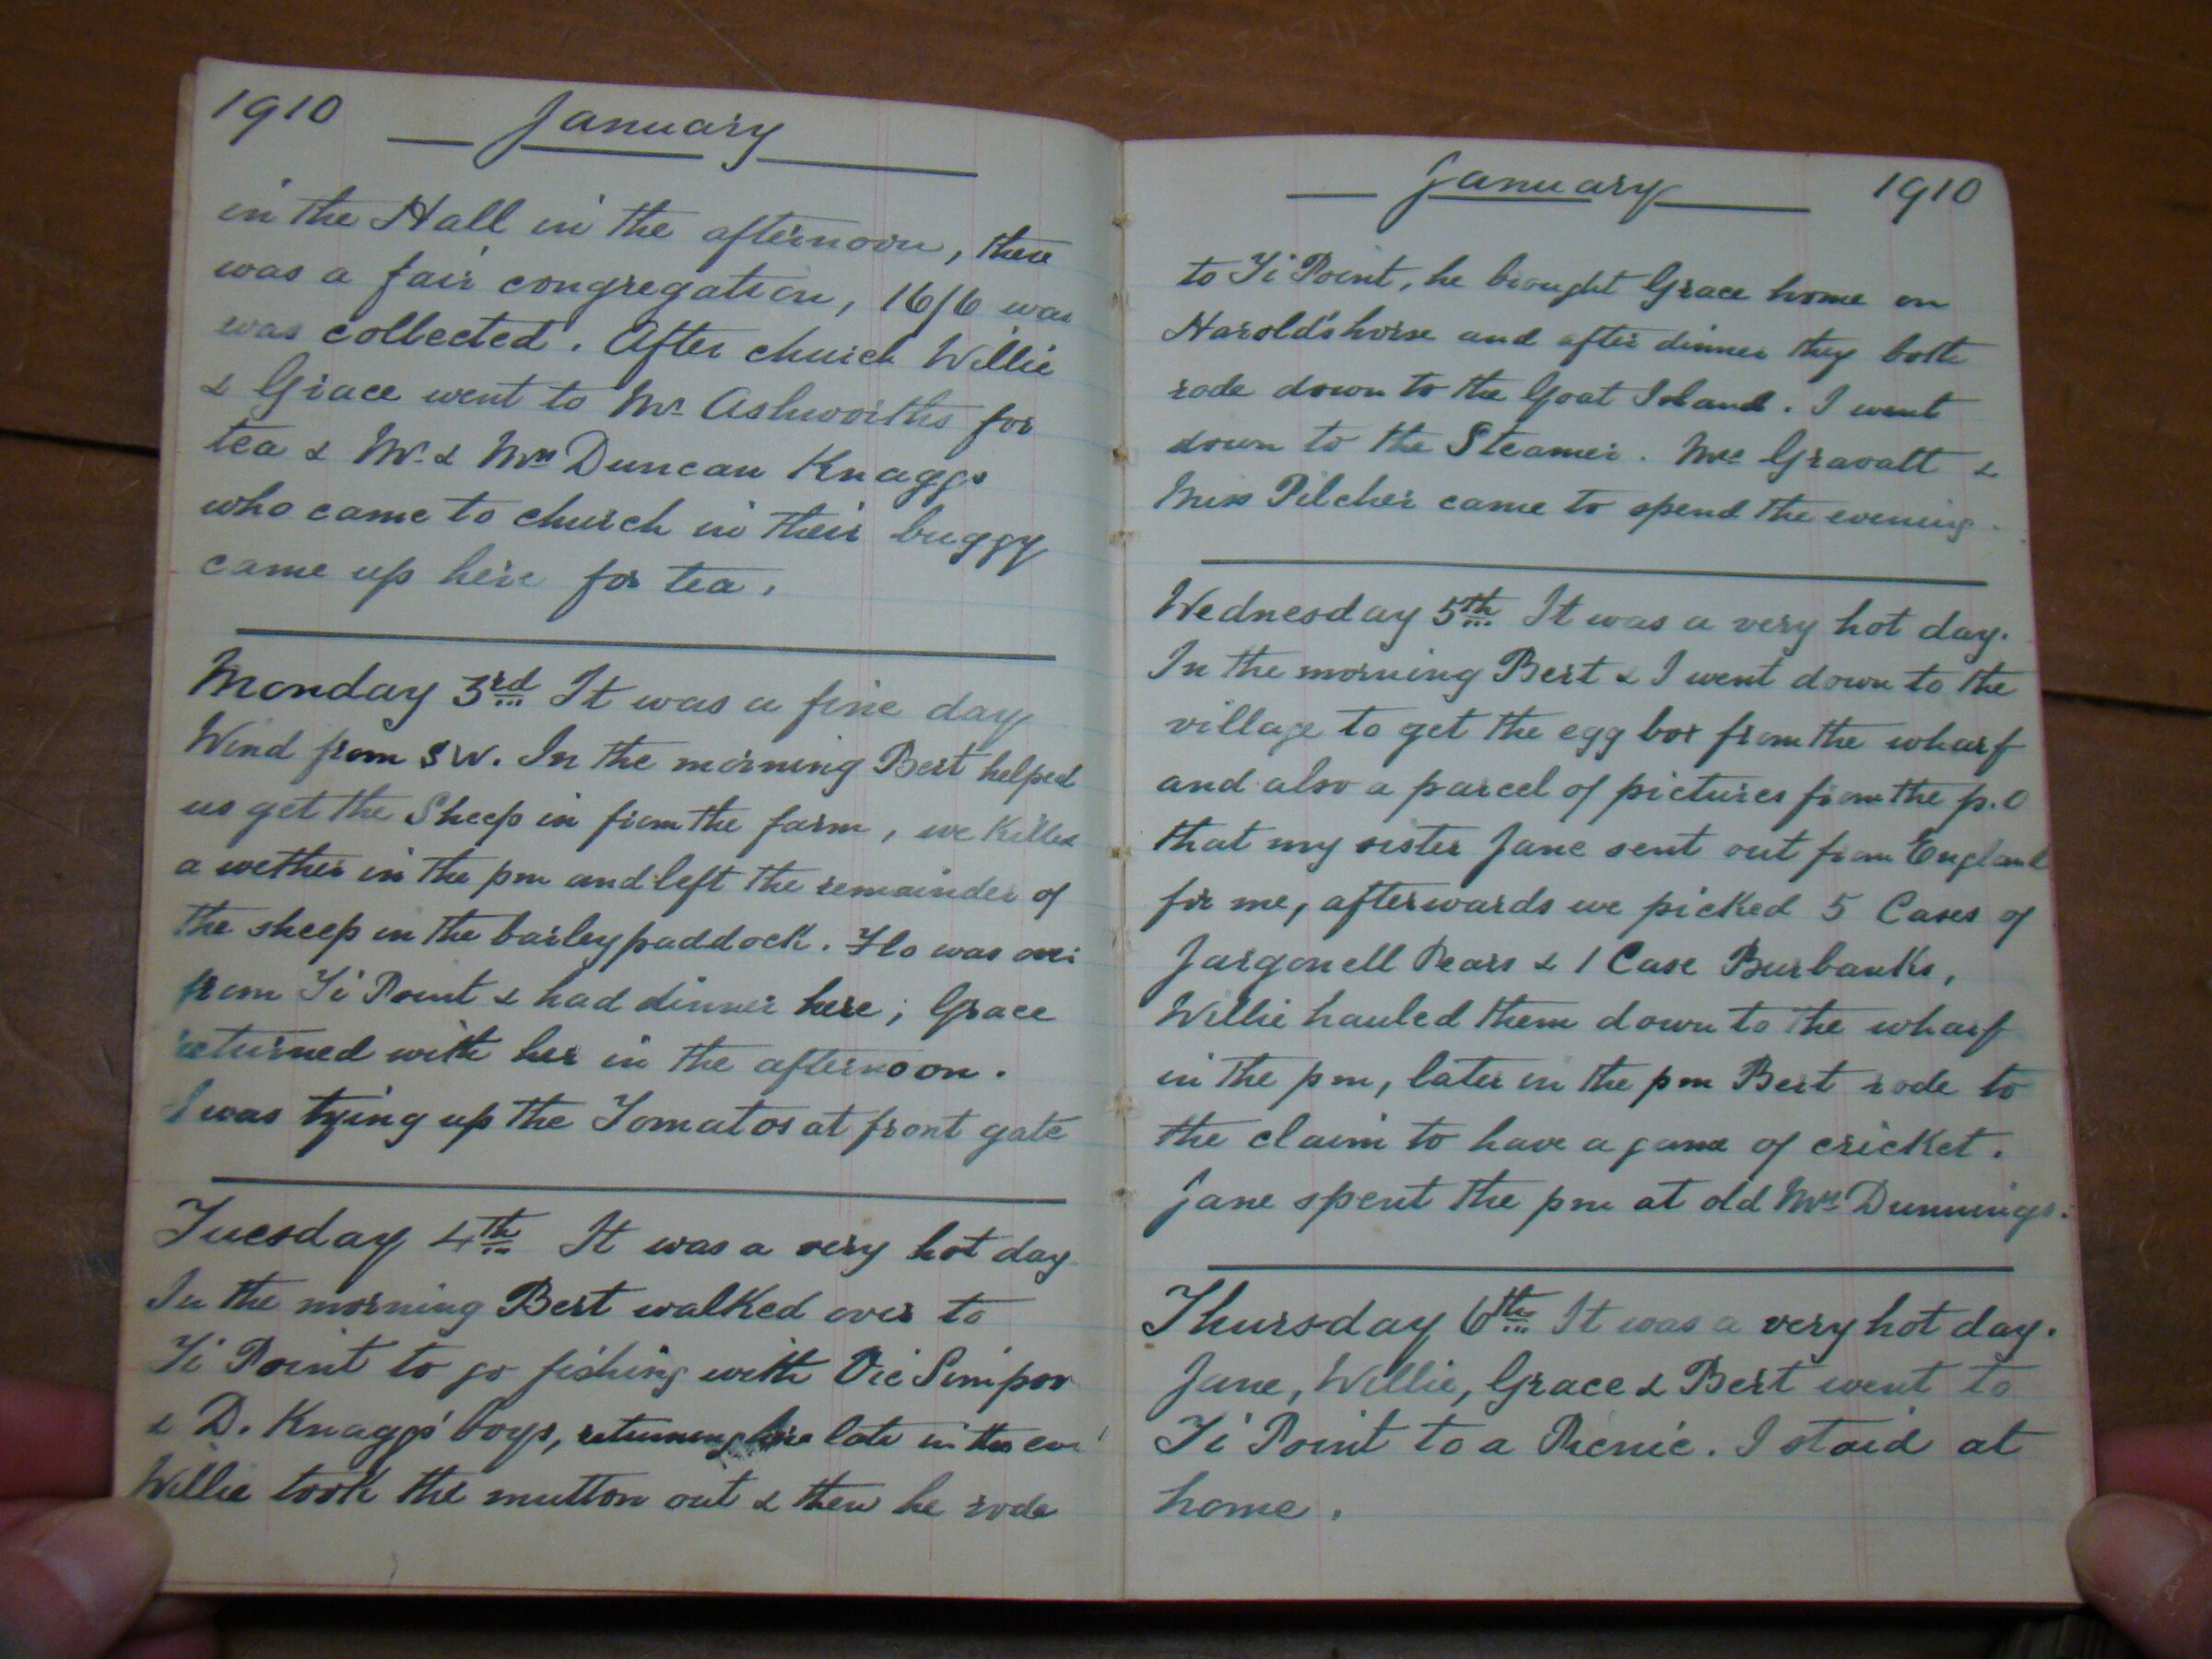 1910 January
in the Hall in the afternoon, there
was a fair congregation, 16/6 was
was collected. After church Willie
& Grace went to Mr Ashworths for
tea & Mr & Mrs Duncan Knaggs
who came to church in their buggy
came up here for tea.
Monday 3rd It was a fine day
Wind from SW. In the morning Bert helped
us get the Sheep in from the farm, we killed
a wether in the pm and left the remainder of
the sheep in the barley paddock. Flo was over
from Ti Point & had dinner here; Grace
returned with her in the afternoon.
I was tying up the Tomatos at front gate
Tuesday 4th It was a very hot day
In the morning Bert walked over to
Ti Point to go fishing with Vic
& D. Knaggs' boys, returning here late in the
Willie took the mutton out & then he rode
January 1910
to Ti Point, he brought Grace home on
Harold's horse and after dinner they both
rode down to the Goat Island. I went
down to the Steamer. Gravatt &
Miss Pilcher came to spend the evening.
Wednesday 5th It was a very hot day.
In the morning Bert & I went down to the
village to get the egg box from the wharf
and also a parcel of pictures from the p.o
that my sister Jane sent out from England
for me, afterwards we picked 5 Cases of
Jargonell Pears & 1 Case Burbanks,
Willie hauled them down to the wharf
in the pm, later in the pm Bert rode to
the claim to have a game of cricket.
Jane spent the pm at old Mrs Dunnings.
Thursday 6th It was a very hot day.
Jane, Willie, Grace & Bert went to
Ti Point to a Picnic. I staid at
home.